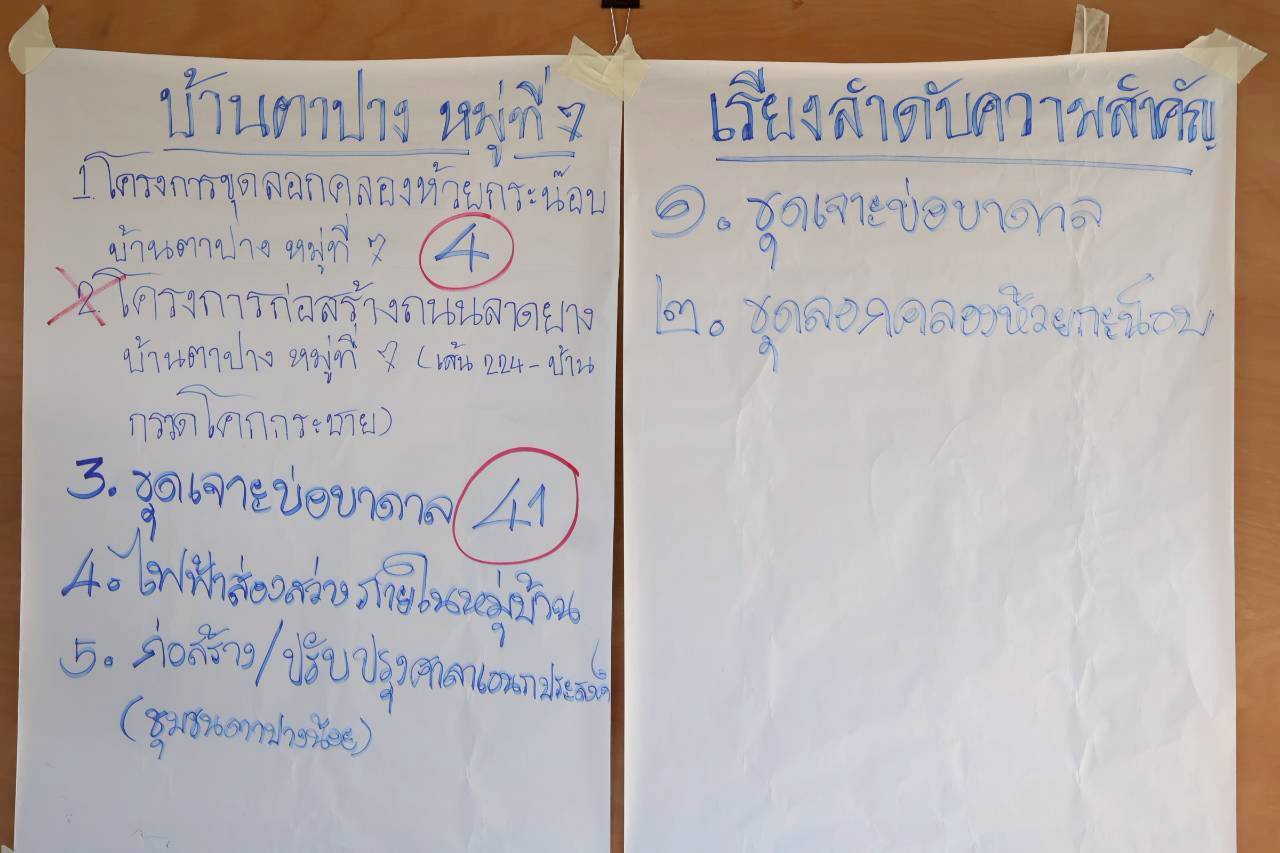 บ้านตาปาง หมู่ที่ 7
1. โครงการขุดลอกคลองห้วยกระน๊อบ
บ้านตาปาง หมู่ที่ 7 4
2. โครงการก่อสร้างถนนลาดยาง
บ้านตาปาง หมู่ที่ 7 (เส้น 224 - บ้าน
กรวดโคกกระชาย)
3. ขุดเจาะบ่อบาดาล 41
4. ไฟฟ้าส่องสว่างภายในหมู่บ้าน
5. ก่อสร้าง/ปรับปรุงศาลาเอนกประสงค์
(ชุมชนตาปางน้อย)
เรียงลำดับความสำคัญ
๑. ขุดเจาะบ่อบาดาล
๒. ขุดลอกคลองห้วยกะน็อบ